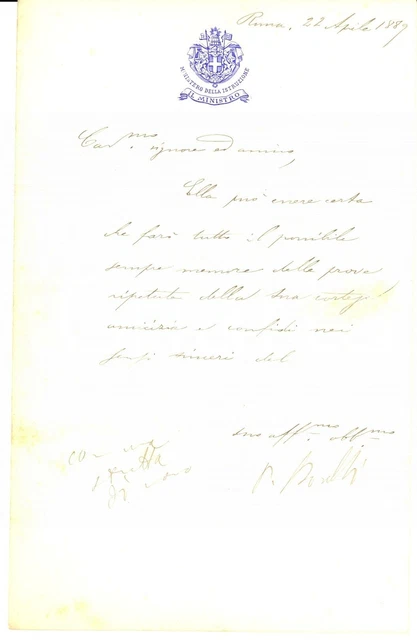 Roma, 22 Aprile 1889
MINISTERO DELLA ISTRUZIONE
IL MINISTRO
Car.mo signore ed amico,
Ella può essere certa
che farò tutto il possibile
sempre memore delle prove
ripetute della sua cortese
amicizia e confidi nei
sensi sinceri del
suo aff.mo obb.mo
P. Boselli
con una